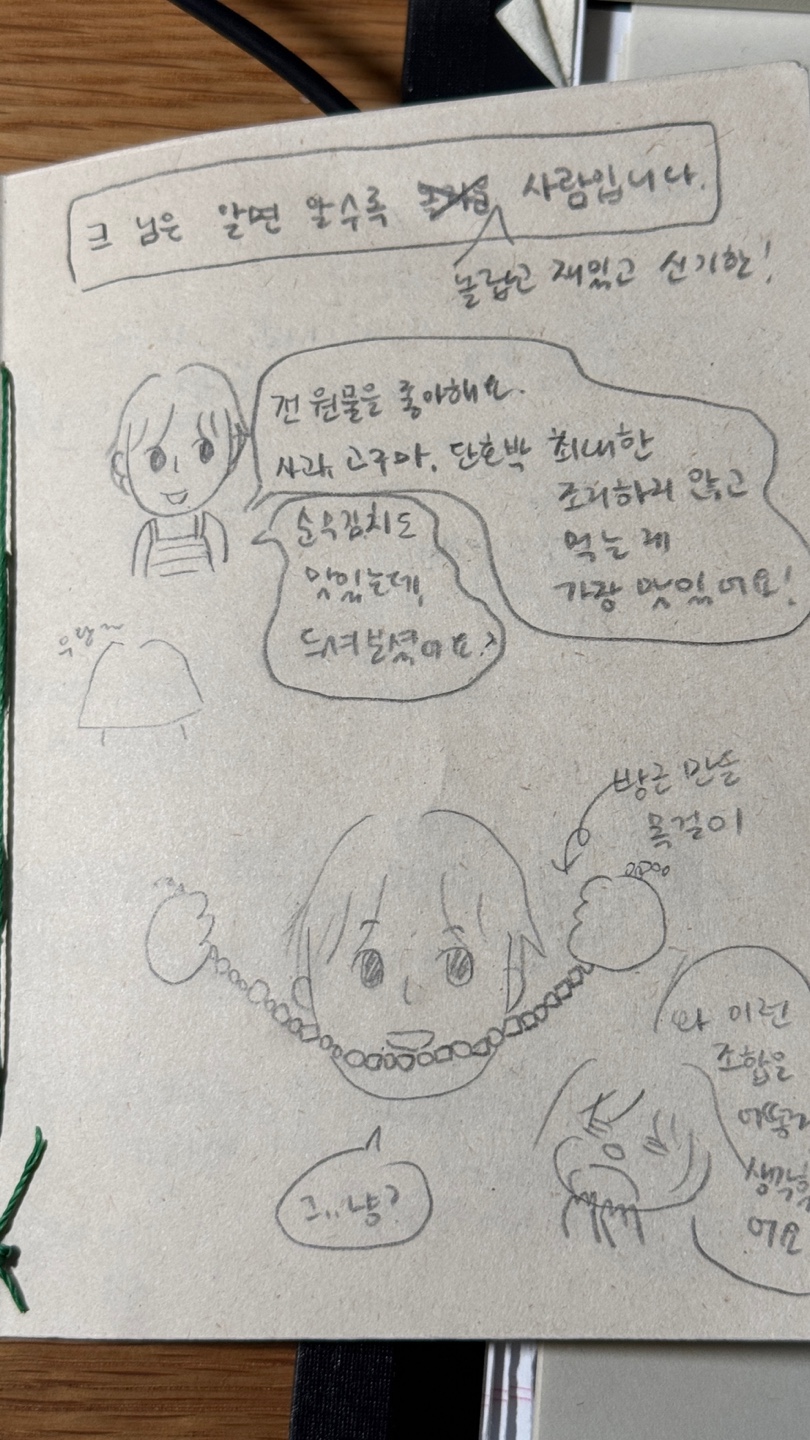 크 님은 알면 알수록 사람입니다.
놀랍고 재밌고 신기한!
전 원물을 좋아해요.
사과, 고구마, 단호박 최대한
조리하지 않고
먹는 게
가장 맛있어요!
순무김치도
맛있는데,
드셔보셨어요?
우랑~
방금 만든
목걸이
와 이런
조합을
어떻게
생각
어요
그.. 냥?